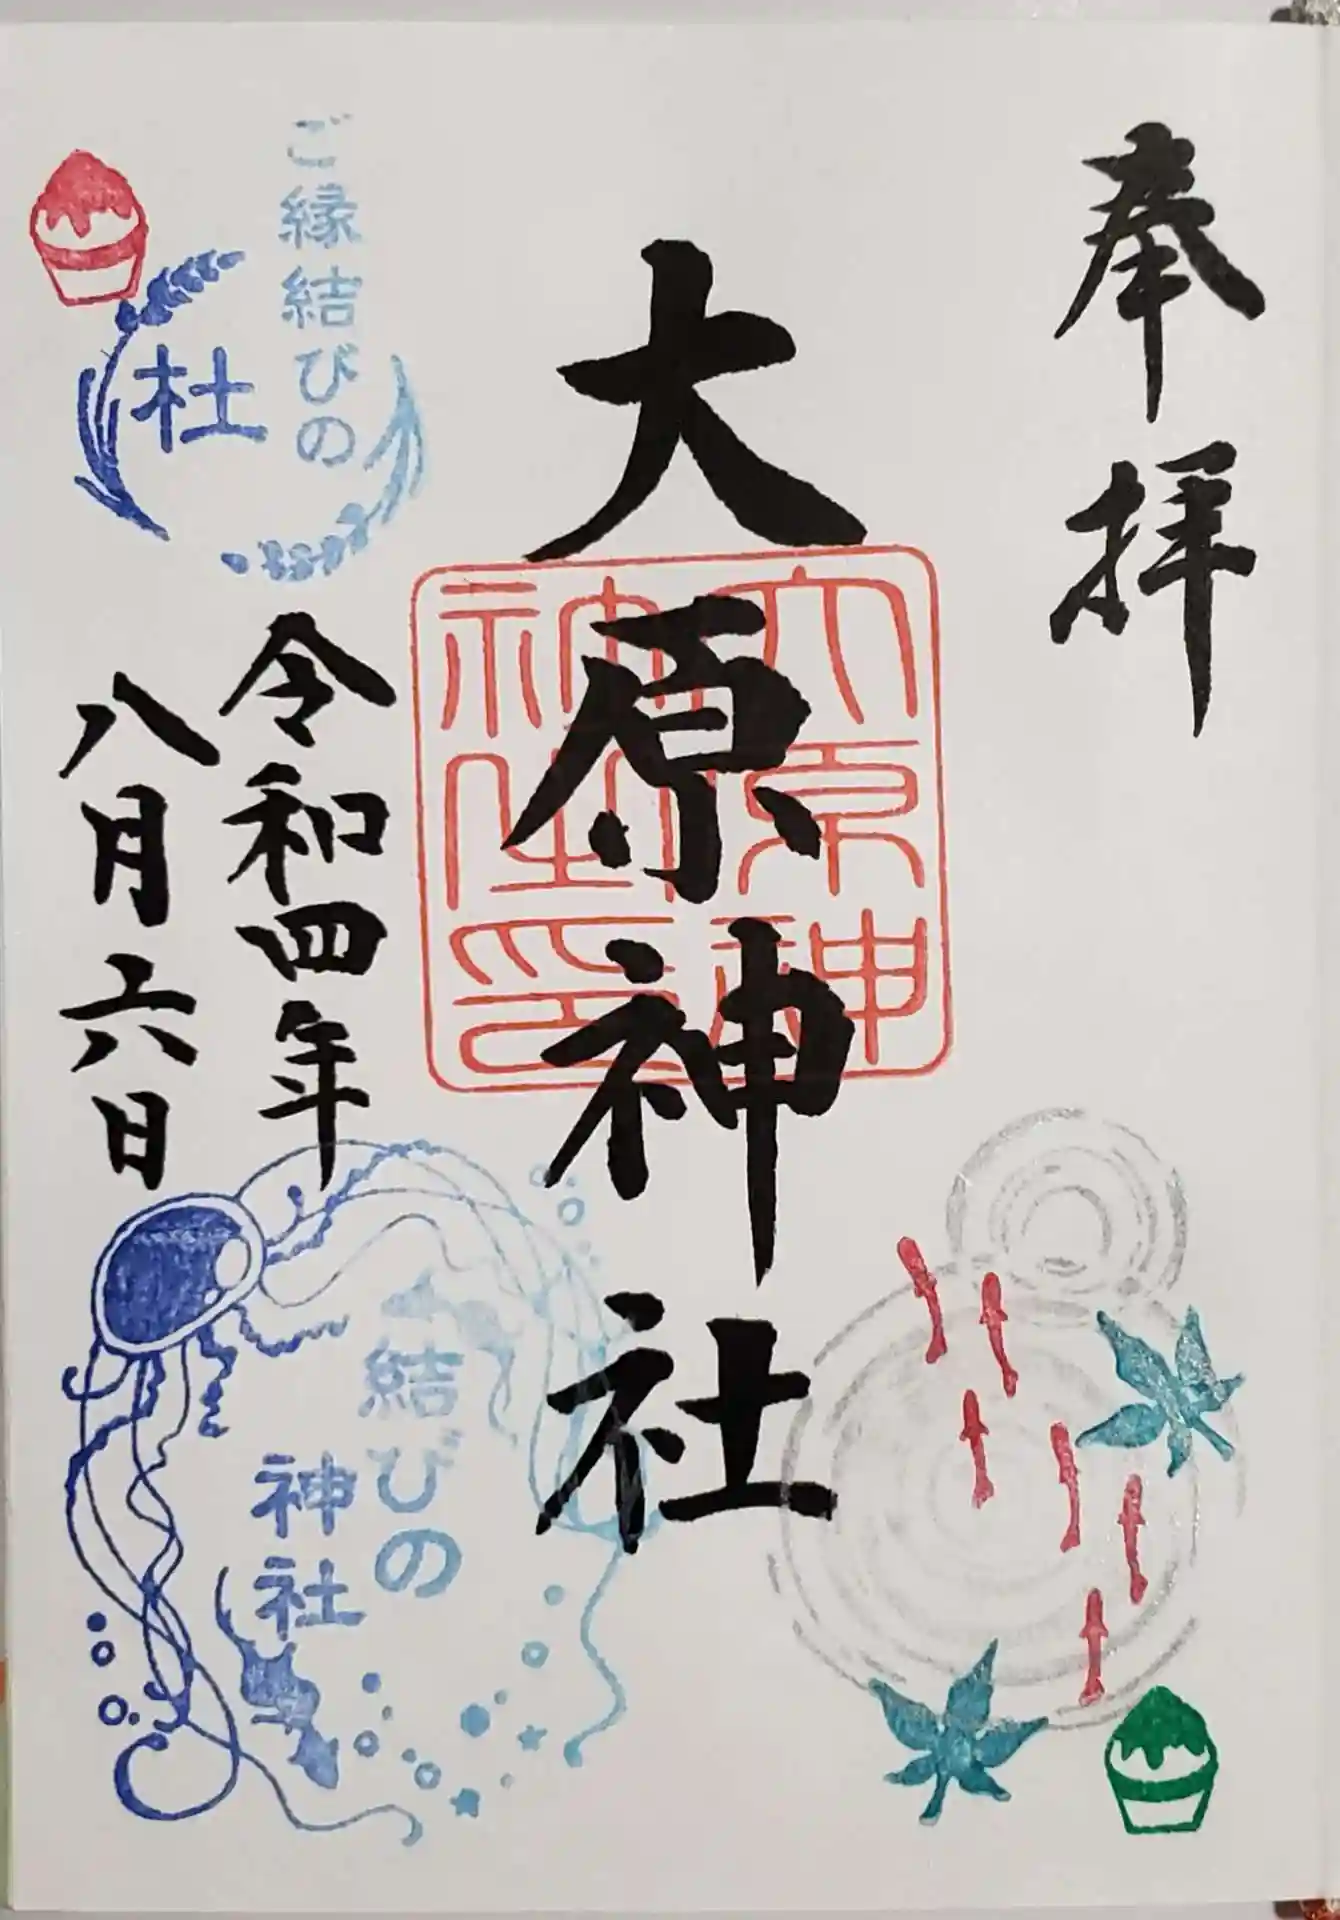 奉拝
大原神社
大原神
社之印
ご縁結びの
杜
令和四年
八月六日
結びの
神社